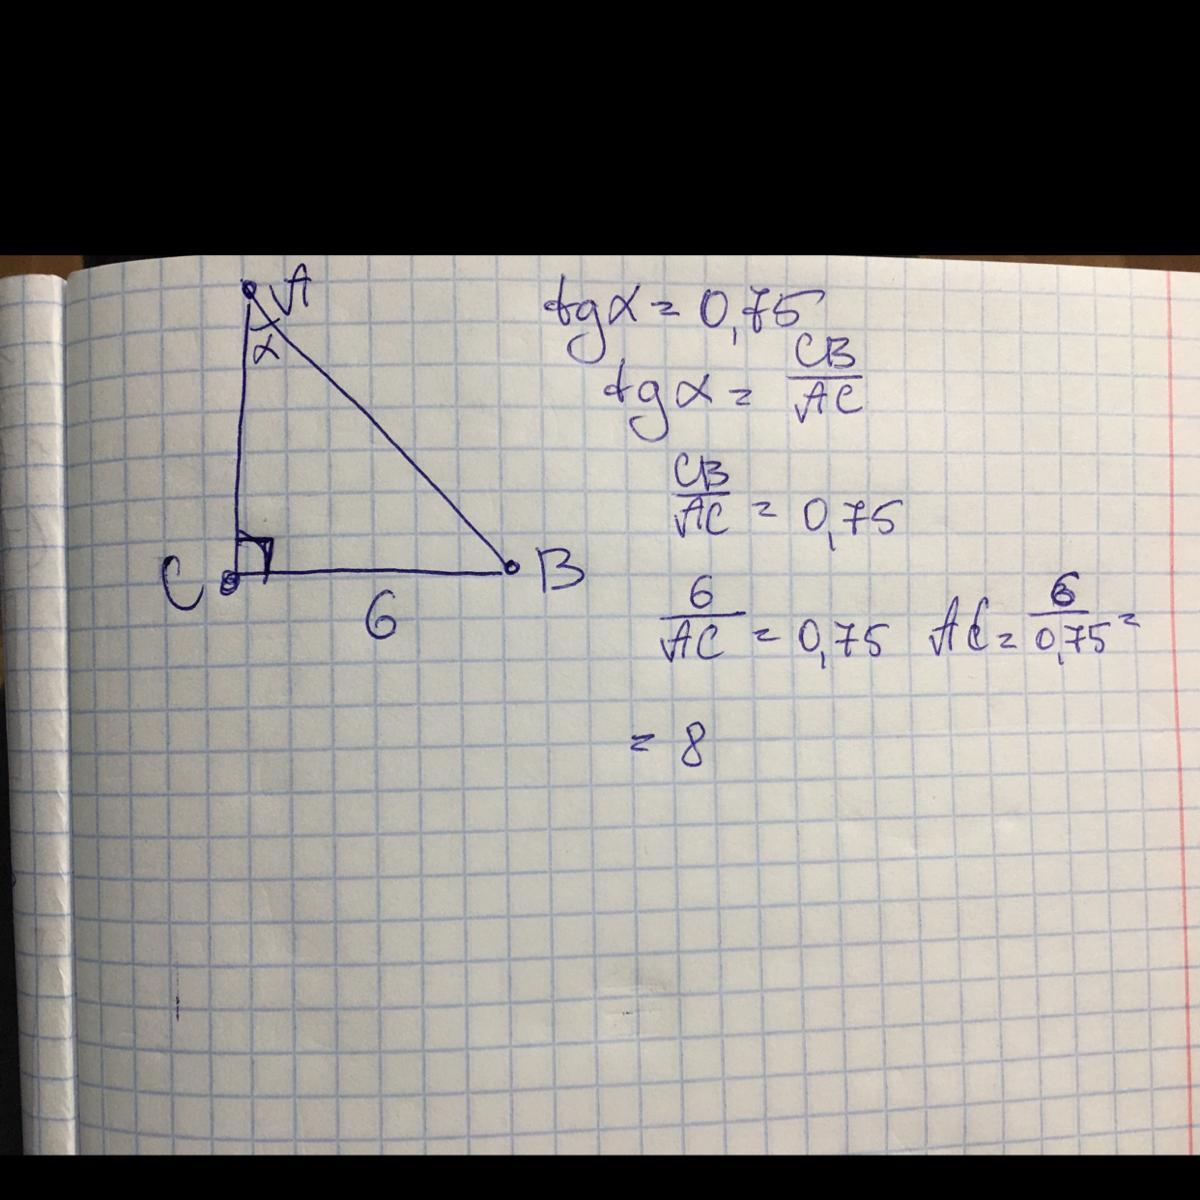 A
α
C
B
6
tgα = 0,75
tgα = CB/AC
CB/AC = 0,75
6/AC = 0,75 AC = 6/0,75 =
= 8